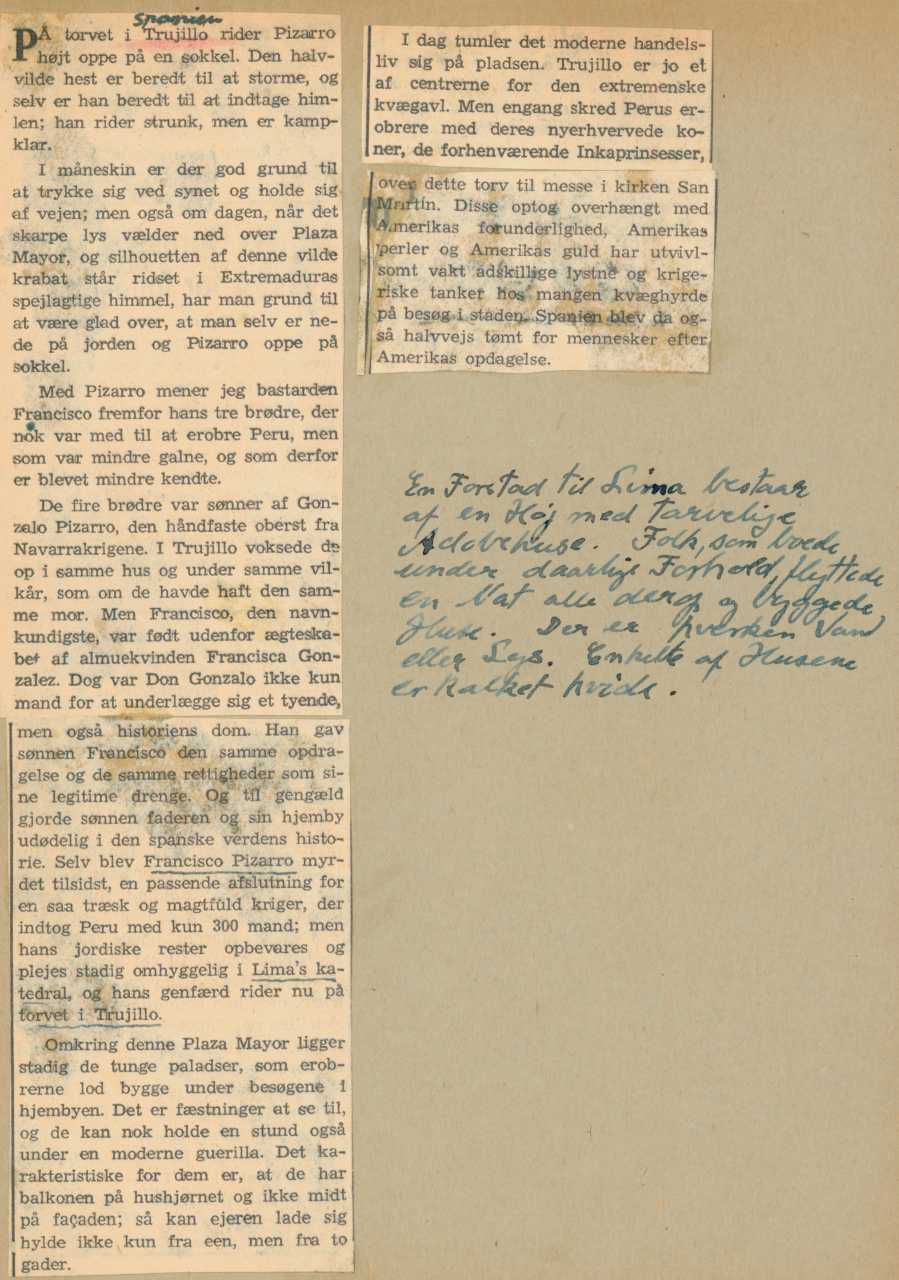 Spanien
PÅ torvet i Trujillo rider Pizarro
højt oppe på en sokkel. Den halv-
vilde hest er beredt til at storme, og
selv er han beredt til at indtage him-
len; han rider strunk, men er kamp-
klar.
I måneskin er der god grund til
at trykke sig ved synet og holde sig
af vejen; men også om dagen, når det
skarpe lys vælder ned over Plaza
Mayor, og silhouetten af denne vilde
krabat står ridset i Extremaduras
spejlagtige himmel, har man grund til
at være glad over, at man selv er ne-
de på jorden og Pizarro oppe på
sokkel.
Med Pizarro mener jeg bastarden
Francisco fremfor hans tre brødre, der
nok var med til at erobre Peru, men
som var mindre galne, og som derfor
er blevet mindre kendte.
De fire brødre var sønner af Gon-
zalo Pizarro, den håndfaste oberst fra
Navarrakrigene. I Trujillo voksede de
op i samme hus og under samme vil-
kår, som om de havde haft den sam-
me mor. Men Francisco, den navn-
kundigste, var født udenfor ægteska-
bet af almuekvinden Francisca Gon-
zalez. Dog var Don Gonzalo ikke kun
mand for at underlægge sig et tyende,
men også historiens dom. Han gav
sønnen Francisco den samme opdra-
gelse og de samme rettigheder som si-
ne legitime drenge. Og til gengæld
gjorde sønnen faderen og sin hjemby
udødelig i den spanske verdens histo-
rie. Selv blev Francisco Pizarro myr-
det tilsidst, en passende afslutning for
en saa træsk og magtfuld kriger, der
indtog Peru med kun 300 mand; men
hans jordiske rester opbevares og
plejes stadig omhyggelig i Lima's ka-
tedral, og hans genfærd rider nu på
torvet i Trujillo.
Omkring denne Plaza Mayor ligger
stadig de tunge paladser, som erob-
rerne lod bygge under besøgene i
hjembyen. Det er fæstninger at se til,
og de kan nok holde en stund også
under en moderne guerilla. Det ka-
rakteristiske for dem er, at de har
balkonen på hushjørnet og ikke midt
på façaden; så kan ejeren lade sig
hylde ikke kun fra een, men fra to
gader.
I dag tumler det moderne handels-
liv sig på pladsen. Trujillo er jo et
af centrerne for den extremenske
kvægavl. Men engang skred Perus er-
obrere med deres nyerhvervede ko-
ner, de forhenværende Inkaprinsesser,
over dette torv til messe i kirken San
Martin. Disse optog overhængt med
Amerikas forunderlighed, Amerikas
perler og Amerikas guld har utvivl-
somt vakt adskillige lystne og krige-
riske tanker hos mangen kvæghyrde
på besøg i staden. Spanien blev da og-
så halvvejs tømt for mennesker efter
Amerikas opdagelse.
En Forstad til Lima bestaar
af en Høj med tarvelige
Adobehuse. Folk, som boede
under daarlige Forhold, flyttede
en Nat alle derop og byggede
Huse. Der er hverken Vand
eller Lys. Enkelte af Husene
er kalket hvide.